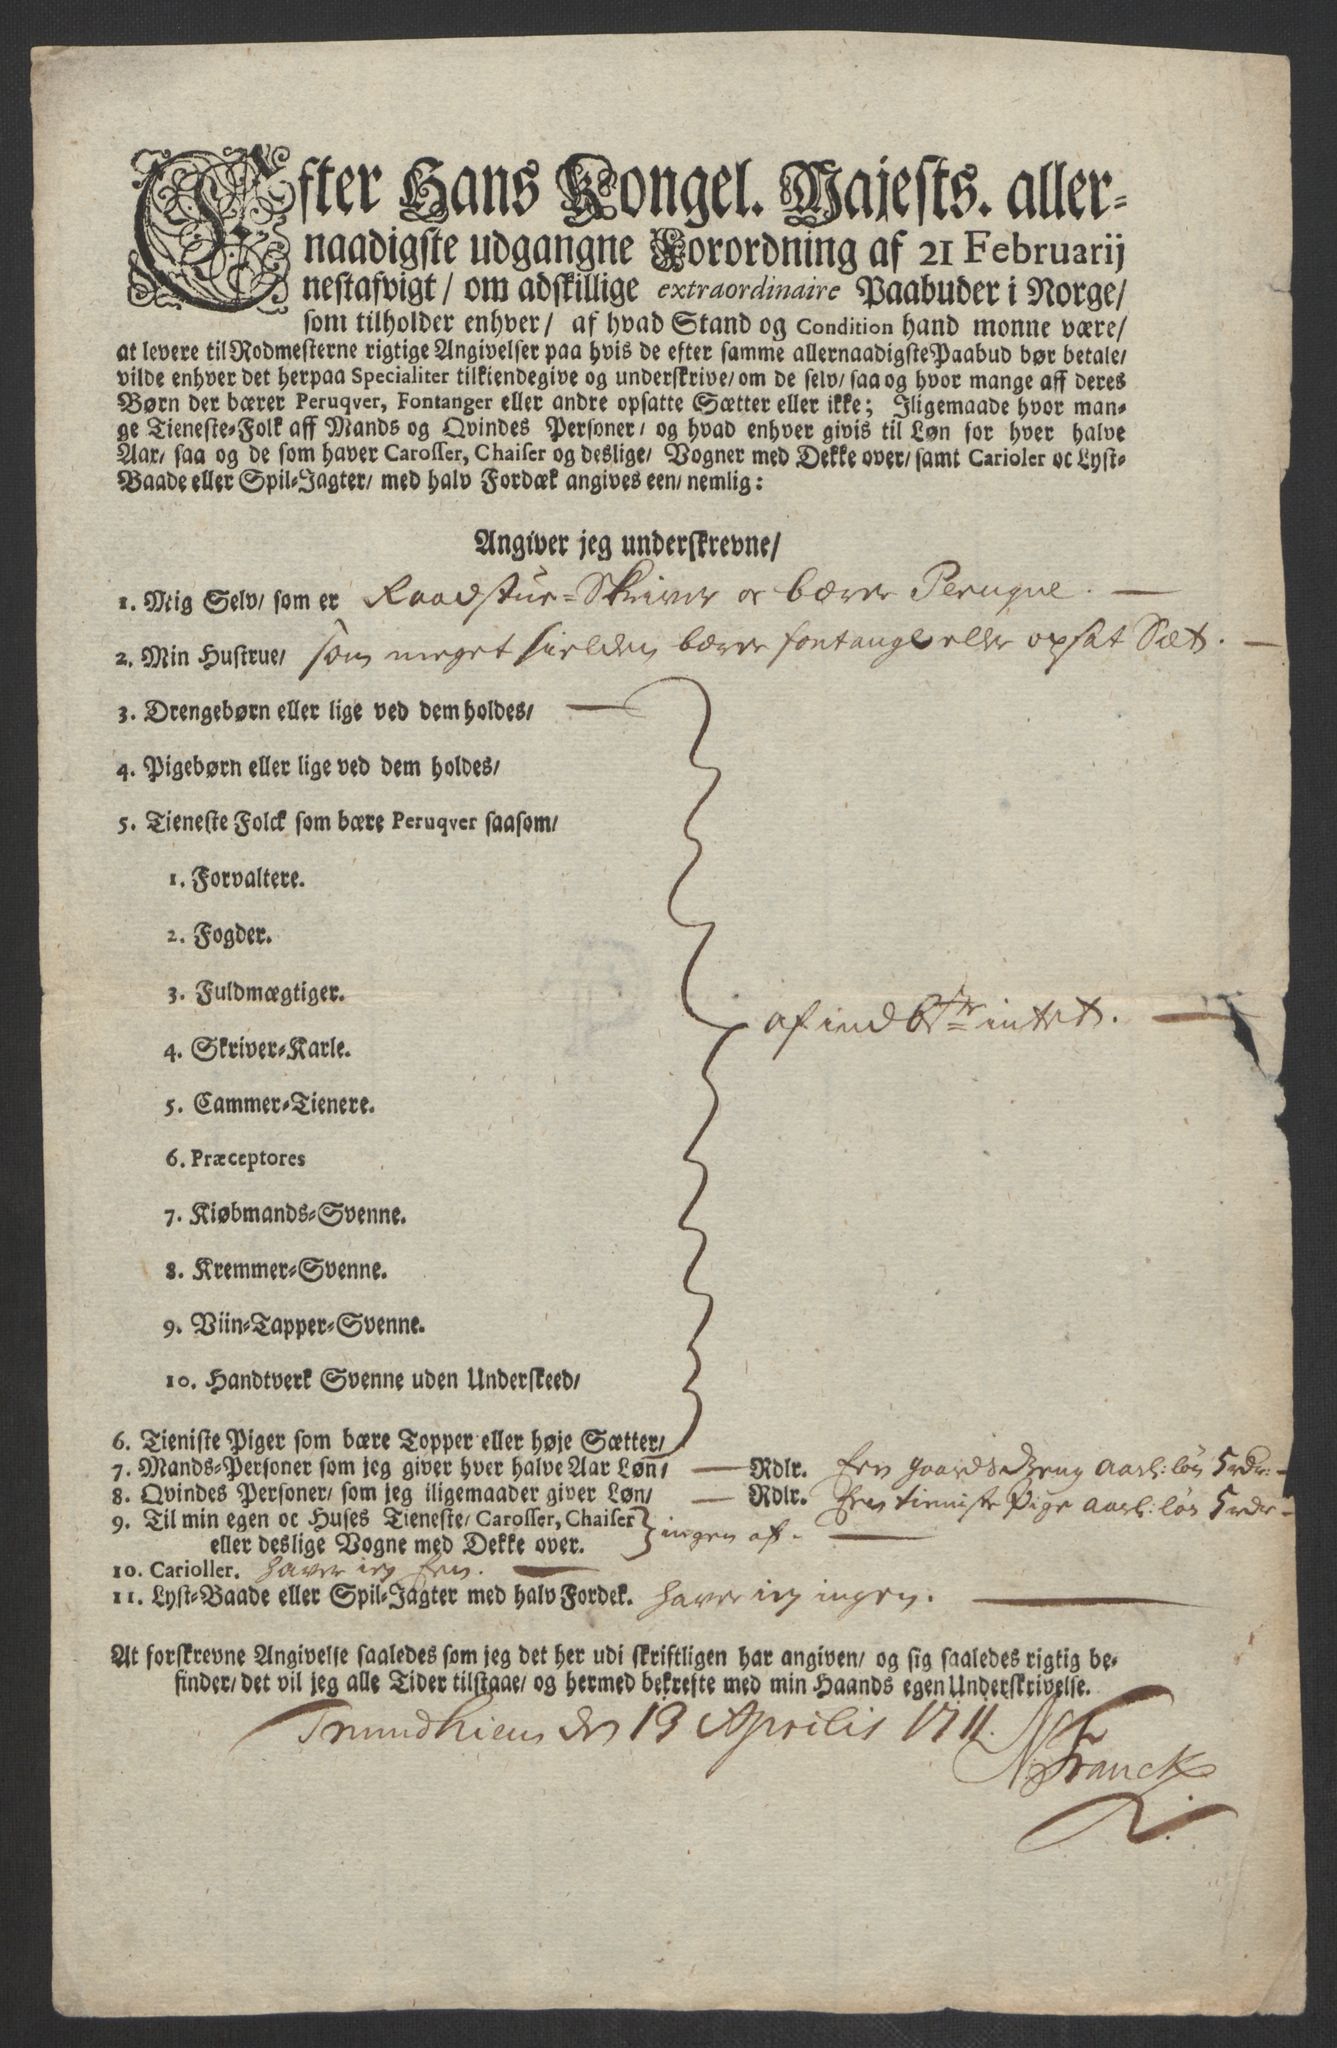 Efter Hans Kongel. Majests. aller-
naadigste udgangne Forordning af 21 Februarij
nestafvigt/ om adskillige extraordinaire Paabuder i Norge/
som tilholder enhver/ af hvad Stand og Condition hand monne være/
at levere til Rodmesterne rigtige Angivelser paa hvis de efter samme allernaadigste Paabud bør betale/
vilde enhver det herpaa Specialiter tilkiendegive og underskrive/ om de selv/ saa og hvor mange aff deres
Børn der bærer Peruqver, Fontanger eller andre opsatte Sætter eller ikke; Iligemaade hvor man-
ge Tieneste-Folk aff Mands og Qvindes Personer/ og hvad enhver givis til Løn for hver halve
Aar/ saa og de som haver Carosser, Chaiser og deslige/ Vogner med Dekke over/ samt Carioler oc Lyst-
Baade eller Spil-Jagter/ med halv Fordæk angives een/ nemlig:
Angiver jeg underskrevne/
1. Mig Selv/ som er Raadstue-Skriver oc bærer Peruque.
2. Min Hustrue/ som meget sielden bærer fontange eller opsat Sæt.
3. Drengebørn eller lige ved dem holdes/
4. Pigebørn eller lige ved dem holdes/
5. Tieneste Folck som bære Peruqver saasom/
1. Forvaltere.
2. Fogder.
3. Fuldmægtiger.
af intet.
4. Skriver-Karle.
5. Cammer-Tienere.
6. Præceptores
7. Kiøbmands-Svenne.
8. Kremmer-Svenne.
9. Viin-Tapper-Svenne.
10. Handtverk Svenne uden Underskeed/
6. Tieniste Piger som bære Topper eller høje Sætter/
7. Mands-Personer som jeg giver hver halve Aar Løn/ Rdlr. Een gaards dreng aarl: løn 5 rdr:
8. Qvindes Personer/ som jeg iligemaader giver Løn/ Rdlr. Een tieniste Pige aarl: løn 5 rdr
9. Til min egen oc Huses Tieneste/ Carosser, Chaiser
eller deslige Vogne med Dekke over. } ingen af.
10. Carioller. haver ieg Een.
11. Lyst-Baade eller Spil-Jagter med halv Fordek. haver ieg ingen.
At forskrevne Angivelse saaledes som jeg det her udi skriftligen har angiven/ og sig saaledes rigtig be-
finder/ det vil jeg alle Tider tilstaae/ og hermed bekrefte med min Haands egen Underskrivelse.
Trundhiem den 13 Aprilis 1711.
Franck